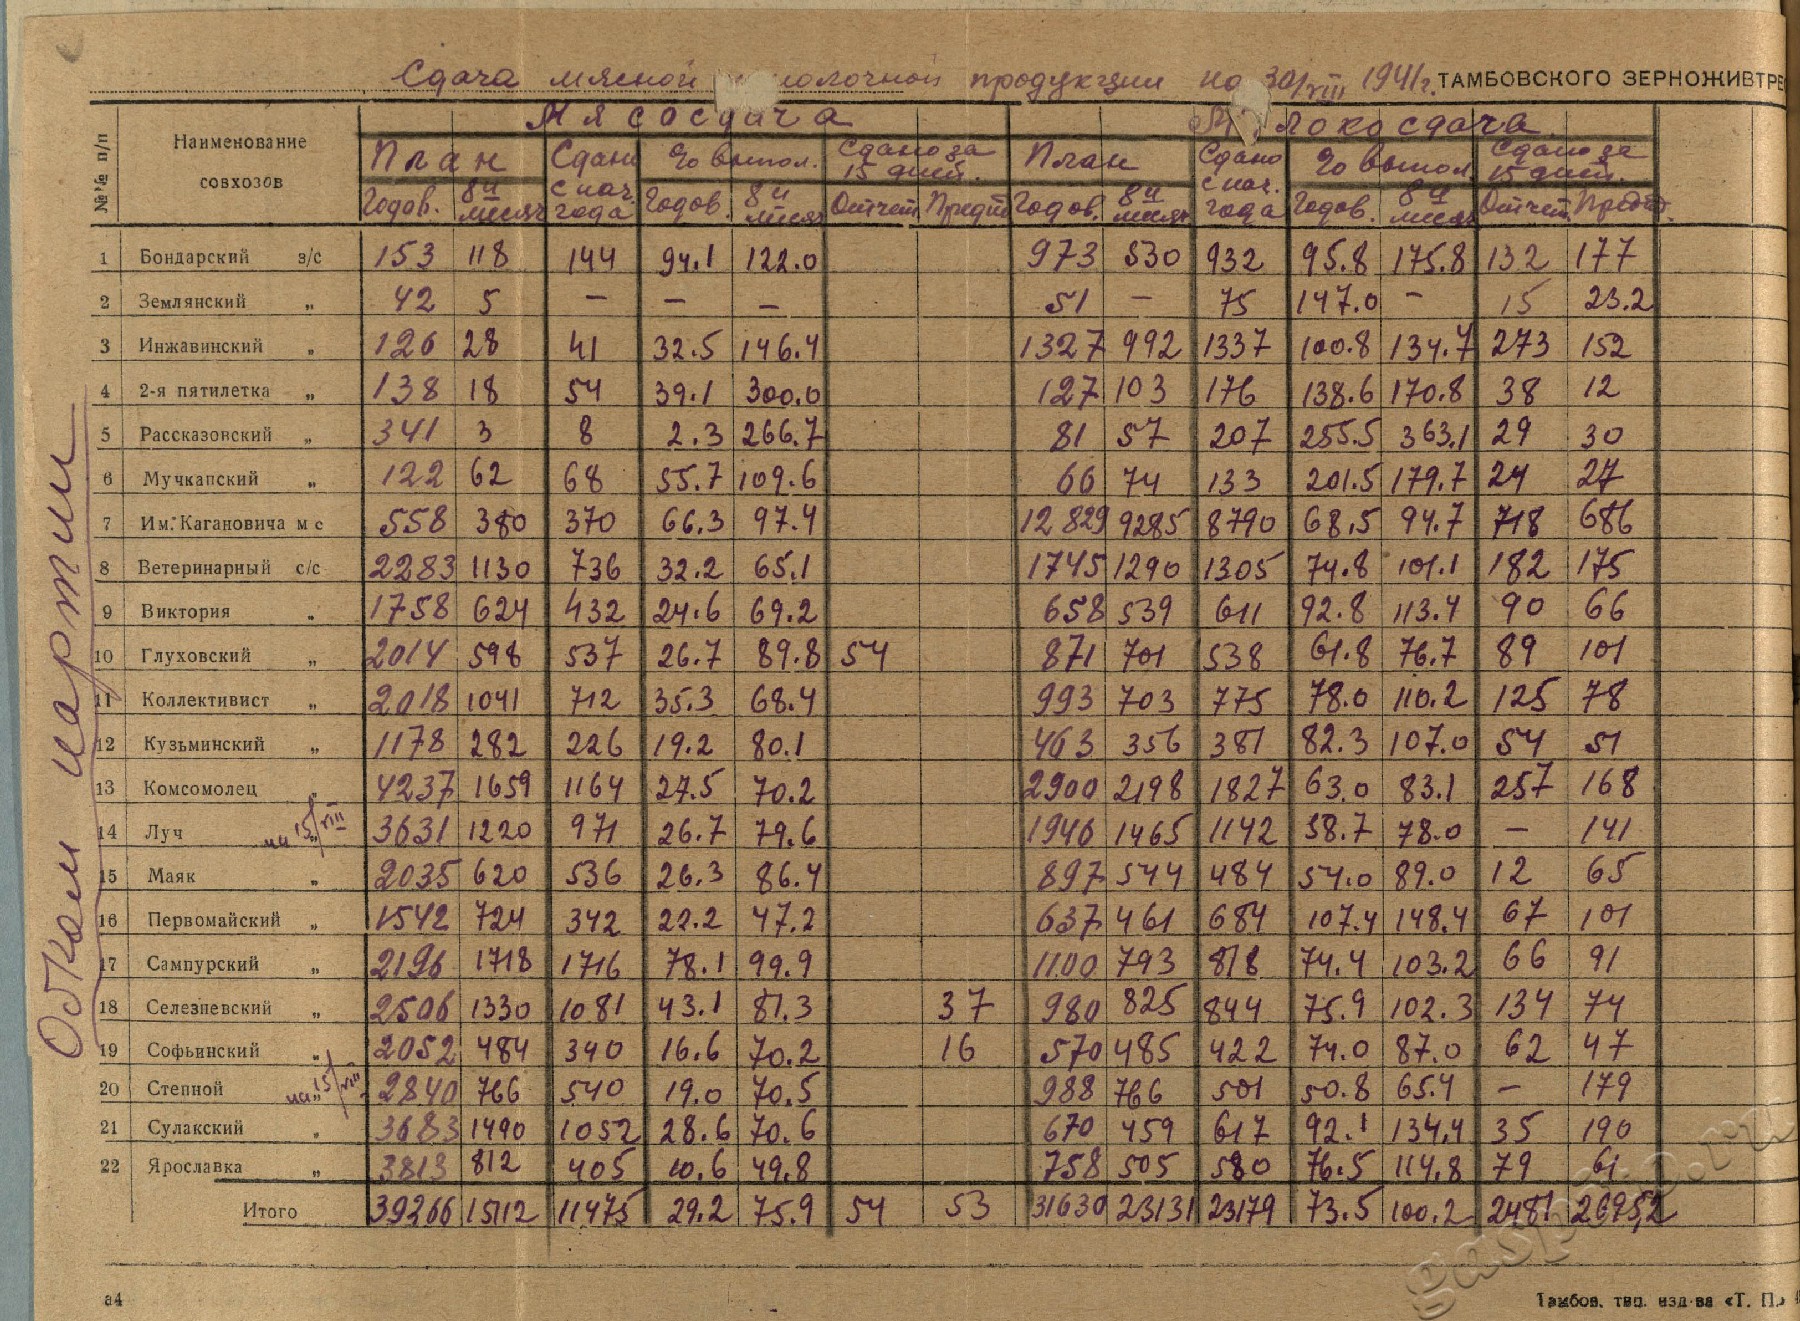 Сдача мясной молочной продукции на 30/VIII 1941 г. ТАМБОВСКОГО ЗЕРНОЖИВТРЕ
№№ п/п Наименование совхозов Мясосдача Молокосдача
План Сдано с нач. года % выпол. Сдано за 15 дней. План Сдано с нач. года % выпол. Сдано за 15 дней.
Годов. 8 и месяч Годов. 8 и месяч Отчет. Предт Годов. 8 и месяч Годов. 8 и месяч Отчет. Предт.
1 Бондарский з/с 153 118 144 94.1 122.0 973 530 932 95.8 175.8 132 177
2 Землянский „ 42 5 — — — 51 — 75 147.0 — 15 23.2
3 Инжавинский „ 126 28 41 32.5 146.4 1327 992 1337 100.8 134.7 273 152
4 2-я пятилетка „ 138 18 54 39.1 300.0 127 103 176 138.6 170.8 38 12
5 Рассказовский „ 341 3 8 2.3 266.7 81 57 207 255.5 363.1 29 30
6 Мучкапский „ 122 62 68 55.7 109.6 66 74 133 201.5 179.7 24 27
7 Им. Кагановича м с 558 380 370 66.3 97.4 12829 9285 8790 68.5 94.7 718 686
8 Ветеринарный с/с 2283 1130 736 32.2 65.1 1745 1290 1305 74.8 101.1 182 175
9 Виктория „ 1758 624 432 24.6 69.2 658 539 611 92.8 113.4 90 66
10 Глуховский „ 2014 598 537 26.7 89.8 54 871 701 538 61.8 76.7 89 101
11 Коллективист „ 2018 1041 712 35.3 68.4 993 703 775 78.0 110.2 125 78
12 Кузьминский „ 1178 282 226 19.2 80.1 463 356 381 82.3 107.0 54 51
13 Комсомолец „ 4237 1659 1164 27.5 70.2 2900 2198 1827 63.0 83.1 257 168
14 Луч „ на 15/VIII 3631 1220 971 26.7 79.6 1946 1465 1142 58.7 78.0 — 141
15 Маяк „ 2035 620 536 26.3 86.4 897 544 484 54.0 89.0 12 65
16 Первомайский „ 1542 724 342 22.2 47.2 637 461 684 107.4 148.4 67 101
17 Сампурский „ 2196 1718 1716 78.1 99.9 1100 793 818 74.4 103.2 66 91
18 Селезневский „ 2506 1330 1081 43.1 81.3 37 980 825 844 75.9 102.3 134 74
19 Софьинский „ 2052 484 340 16.6 70.2 16 570 485 422 74.0 87.0 62 47
20 Степной „ на 15/VIII 2840 766 540 19.0 70.5 988 766 501 50.8 65.4 — 179
21 Сулакский „ 3683 1490 1052 28.6 70.6 670 459 617 92.1 134.4 35 190
22 Ярославка „ 3813 812 405 10.6 49.8 758 505 580 76.5 114.8 79 61
Итого 39266 15112 11475 29.2 75.9 54 53 31630 23131 23179 73.5 100.2 2481 2695,2
Обком партии
а4
Тамбов. тип. изд-ва «Т. П.»
gaspito.ru